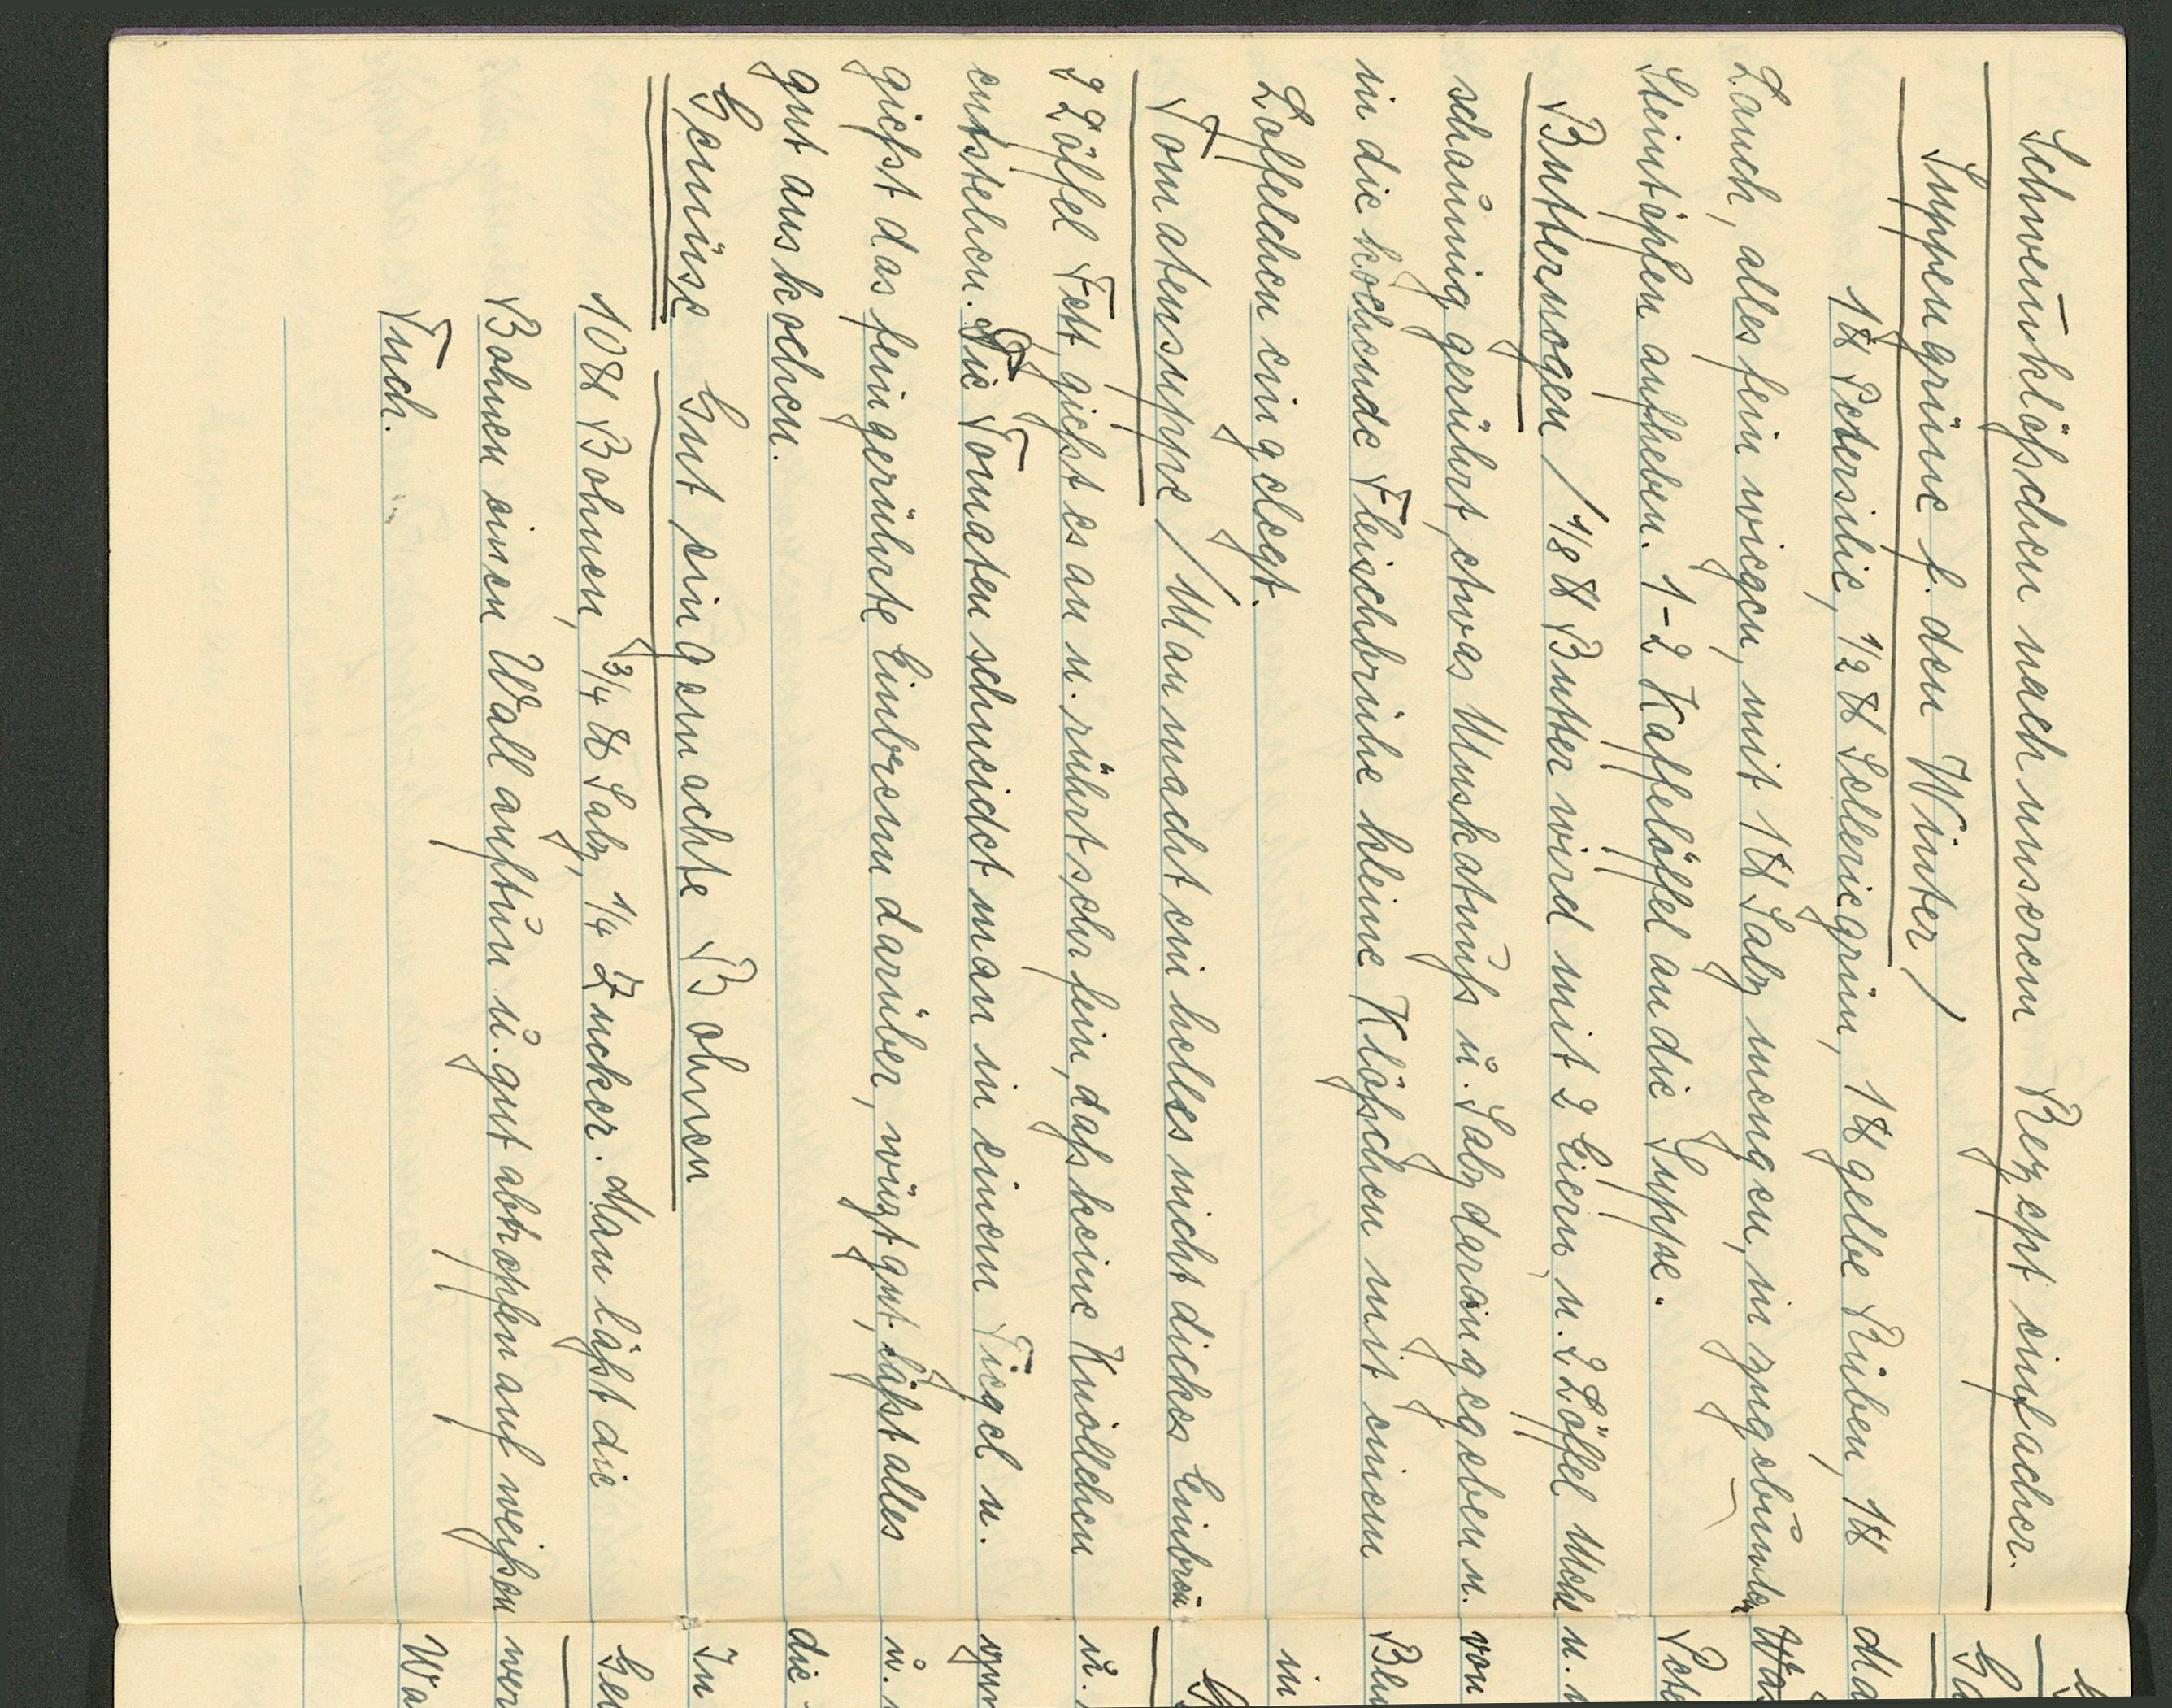 Schwemklößchen nach unserem Rezept einfacher.
Suppengrüne f. den Winter /
1 ℔ Petersilie, 1/2 ℔ Selleriegrün, 1 ℔ gelbe Rüben, 1 ℔
Lauch, alles fein wiegen, mit 1 ℔ Salz mengen, in zugebunden
Steintöpfen aufheben. 1-2 Kaffelöffel an die Suppe.
Butternogen / 1/8 ℔ Butter wird mit 2 Eiern u. 2 Löffel Mehl
schaumig gerührt, etwas Muskatnuß u. Salz darangegeben u.
in die kochende Fleischbrühe kleine Klößchen mit einem
Löffelchen eingelegt.
Tomatensuppe / Man macht ein helles nicht dickes Einbren
2 Löffel Fett, gießt es an u. rührt sehr fein, daß keine Knöllchen
entstehen. Die Tomaten schneidet man in einem Tiegel u.
gießt das feingerührte Einbrenn darüber, würzt gut, läßt alles
gut auskochen.
Gemüse Gut eingemachte Bohnen
10 ℔ Bohnen, 3/4 ℔ Salz, 1/4 Zucker. Man läßt die
Bohnen einen Wall auftun u. gut abtropfen auf weißen
Tuch.
Ma
Pete
u.
von
Blu
in
u.
u.
die
In
Ge
ver
Wa